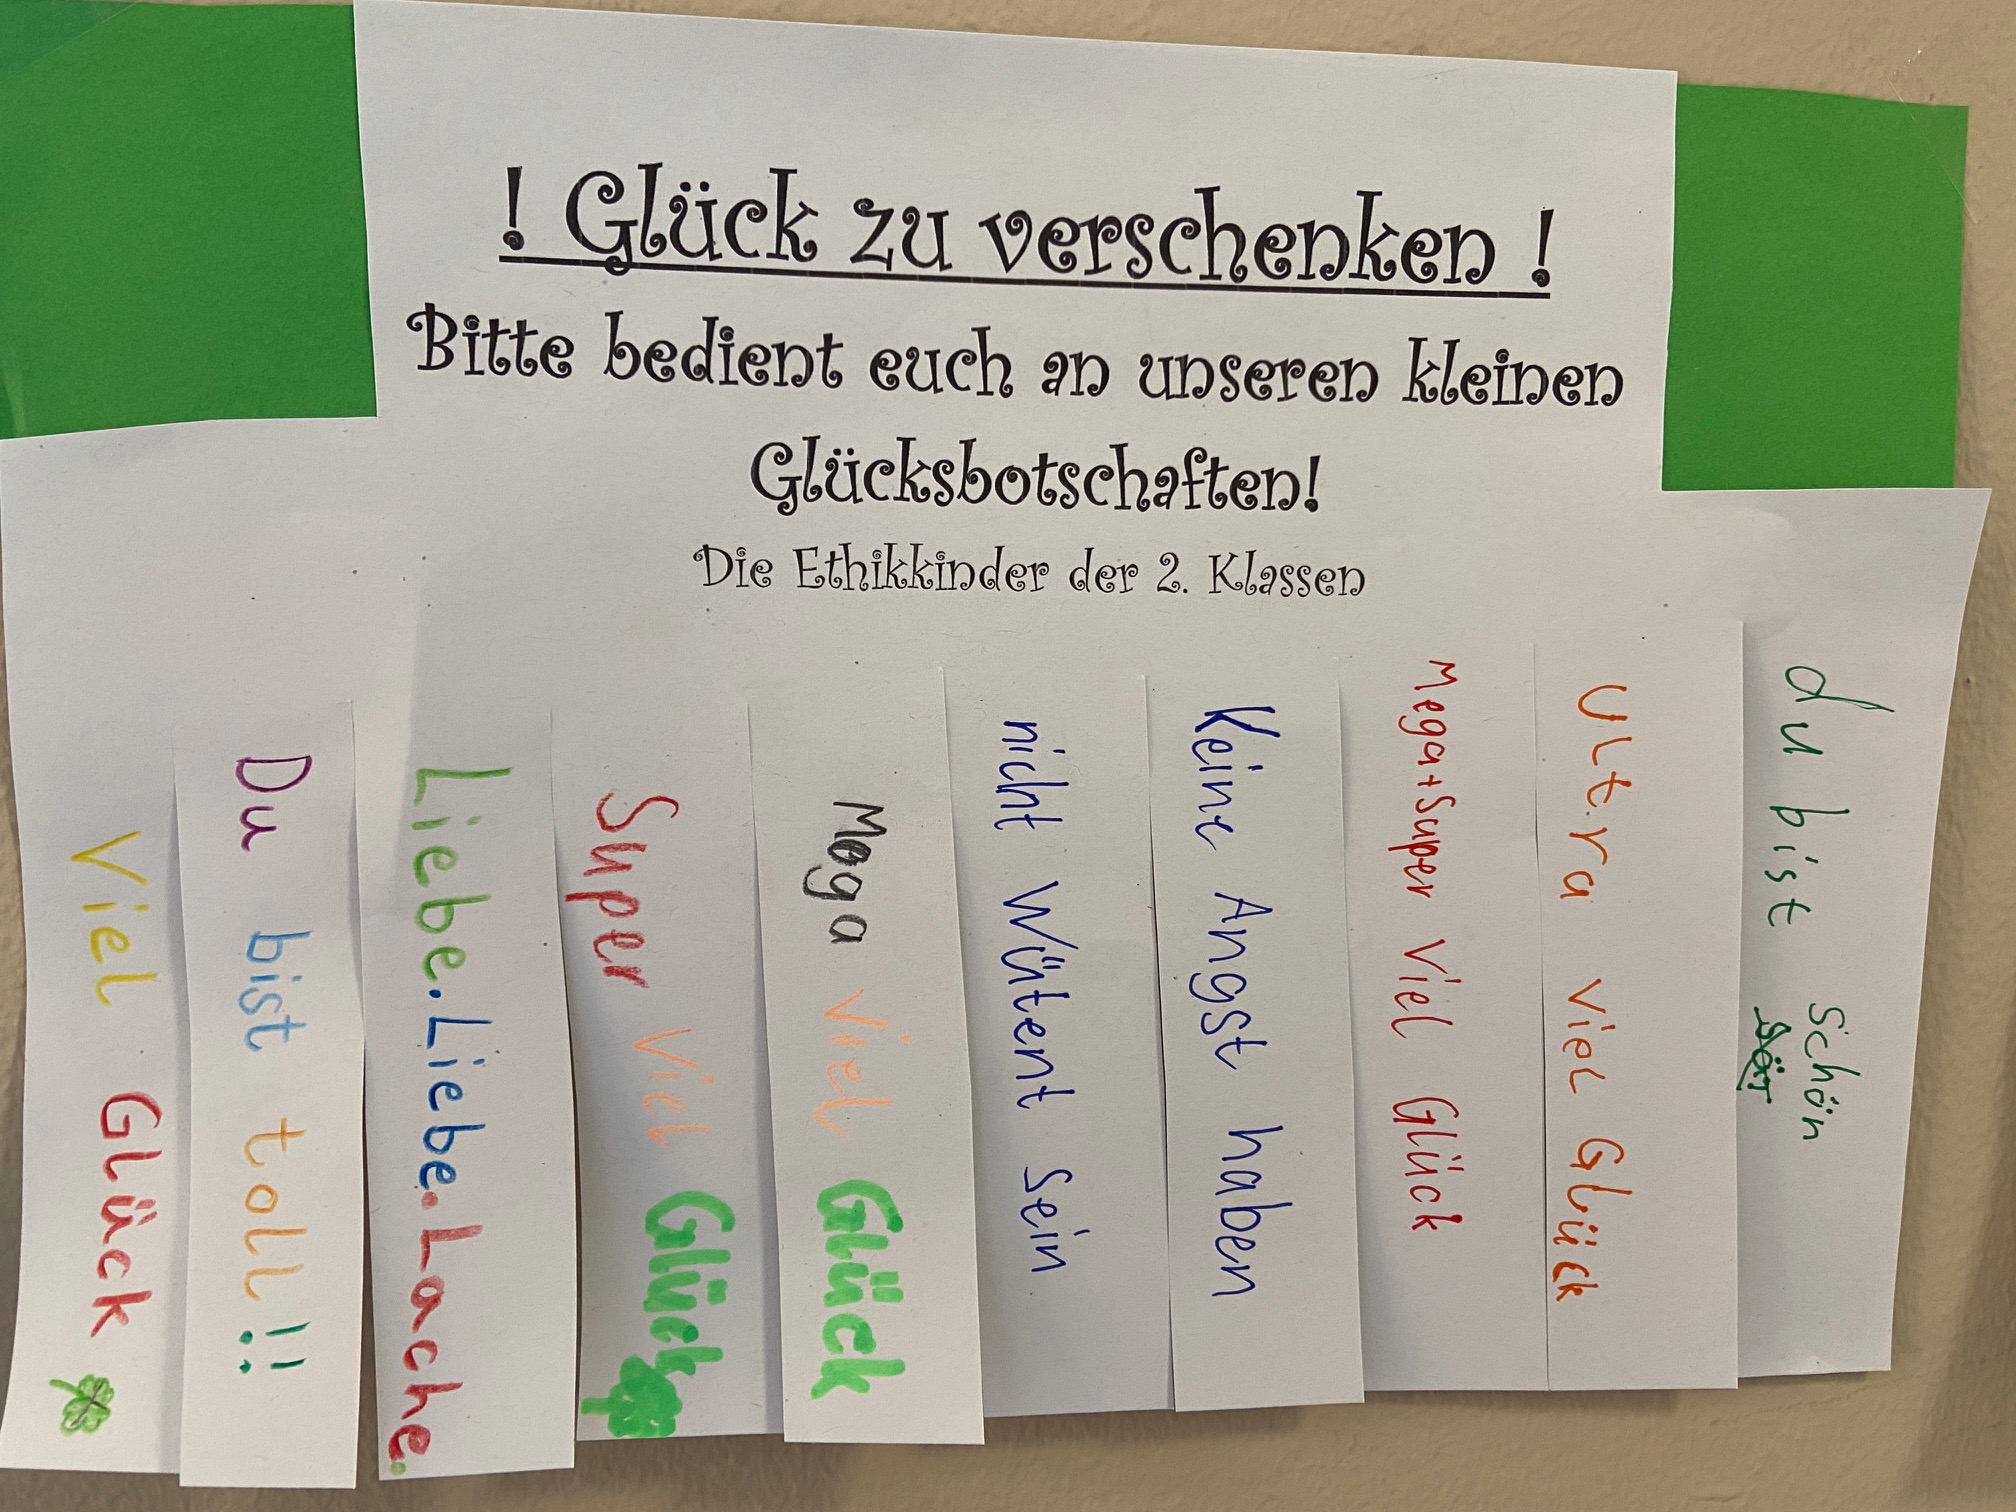 ! Glück zu verschenken !
Bitte bedient euch an unseren kleinen
Glücksbotschaften!
Die Ethikkinder der 2. Klassen
Viel Glück
Du bist toll!!
Liebe.Liebe.Lache.
Super Viel Glück
Mega Viel Glück
nicht Wütent Sein
Keine Angst haben
Mega+Super Viel Glück
Ultra Viel Glück
du bist schön